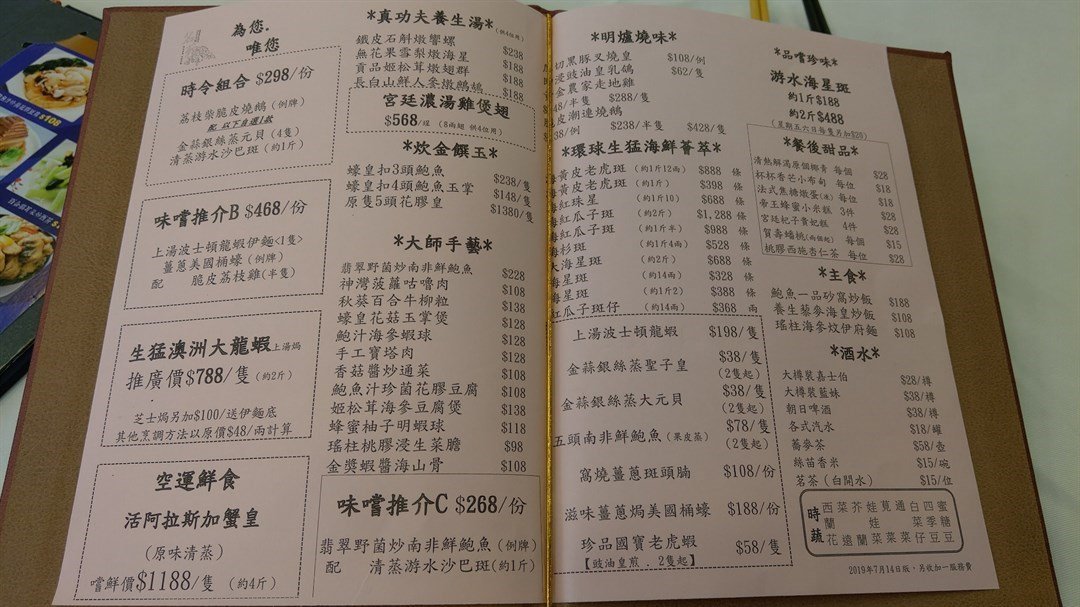 為您.
唯您
時令組合 $298/份
荔枝柴脆皮燒鵝 (例牌)
配 以下自選1款
金蒜銀絲蒸元貝 (4隻)
清蒸游水沙巴斑 (約1斤)
味嚐推介B $468/份
上湯波士頓龍蝦伊麵<1隻>
薑蔥美國桶蠔 (例牌)
配 脆皮荔枝雞(半隻)
生猛澳洲大龍蝦上湯焗
推廣價$788/隻 (約2斤)
芝士焗另加$100/送伊麵底
其他烹調方法以原價$48/兩計算
空運鮮食
活阿拉斯加蟹皇
(原味清蒸)
嚐鮮價$1188/隻 (約4斤)
*真功夫養生湯*(供4位用)
鐵皮石斛燉響螺 $238
無花果雪梨燉海星 $188
貢品姬松茸燉翅群 $188
長白山鮮人參燉鷓鴣 $188
宮廷濃湯雞煲翅
$568/煲 (8兩翅 供4位用)
*炊金饌玉*
蠔皇扣3頭鮑魚 $238/隻
蠔皇扣4頭鮑魚玉掌 $148/隻
原隻5頭花膠皇 $1380/隻
*大師手藝*
翡翠野菌炒南非鮮鮑魚 $228
神灣菠蘿咕嚕肉 $108
秋葵百合牛柳粒 $138
蠔皇花菇玉掌煲 $128
鮑汁海參蝦球 $128
手工寶塔肉 $128
香菇醬炒通菜 $108
鮑魚汁珍菌花膠豆腐 $108
姬松茸海參豆腐煲 $138
蜂蜜柚子明蝦球 $118
瑤柱桃膠浸生菜膽 $98
金獎蝦醬海山骨 $108
味嚐推介C $268/份
翡翠野菌炒南非鮮鮑魚 (例牌)
配 清蒸游水沙巴斑(約1斤)
*明爐燒味*
切黑豚叉燒皇 $108/例
浸豉油皇乳鴿 $62/隻
金農家走地雞
48/半隻 $288/隻
皮潮連燒鵝
38/例 $238/半隻 $428/隻
*環球生猛海鮮薈萃*
黃皮老虎斑 (約1斤12兩) $888 條
黃皮老虎斑 (約1斤) $398 條
紅珠星 (約1斤10) $688 條
紅瓜子斑 (約2斤) $1,288 條
紅瓜子斑 (約1斤半) $988 條
杉斑 (約1斤4兩) $528 條
大海星斑 (約2斤) $688 條
海星斑 (約14兩) $328 條
海星斑 (約1斤2) $388 條
紅瓜子斑仔 (約14兩) $368 兩
上湯波士頓龍蝦 $198/隻
金蒜銀絲蒸聖子皇 $38/隻
(2隻起)
金蒜銀絲蒸大元貝 $38/隻
(2隻起)
五頭南非鮮鮑魚 (果皮蒸) $78/隻
(2隻起)
窩燒薑蔥斑頭腩 $108/份
滋味薑蔥焗美國桶蠔 $188/份
珍品國寶老虎蝦 $58/隻
【豉油皇煎．2隻起】
*品嚐珍味*
游水海星斑
約1斤$188
約2斤$488
(星期五六日每隻另加$20)
*餐後甜品*
清熱解渴原個椰青 每個 $28
杯杯香芒小布甸 每位 $18
法式焦糖燉蛋(凍) 每位 $28
帝王蜂蜜小米糕 3件 $18
宮廷杞子貴妃糕 4件 $28
賀壽蟠桃(兩個起) 每個 $15
桃膠西施杏仁茶 每位 $28
*主食*
鮑魚一品砂窩炒飯 $188
養生藜麥海皇炒飯 $108
瑤柱海參炆伊府麵 $108
*酒水*
大樽裝嘉士伯 $28/樽
大樽裝藍妹 $38/樽
朝日啤酒 $38/樽
各式汽水 $18/罐
蕎麥茶 $58/壺
絲苗香米 $15/碗
茗茶 (白開水) $15/位
時蔬
西蘭花
菜遠
芥蘭
娃娃菜
莧菜
通菜
白菜仔
四季豆
蜜糖豆
2019年7月14日版，另收加一服務費